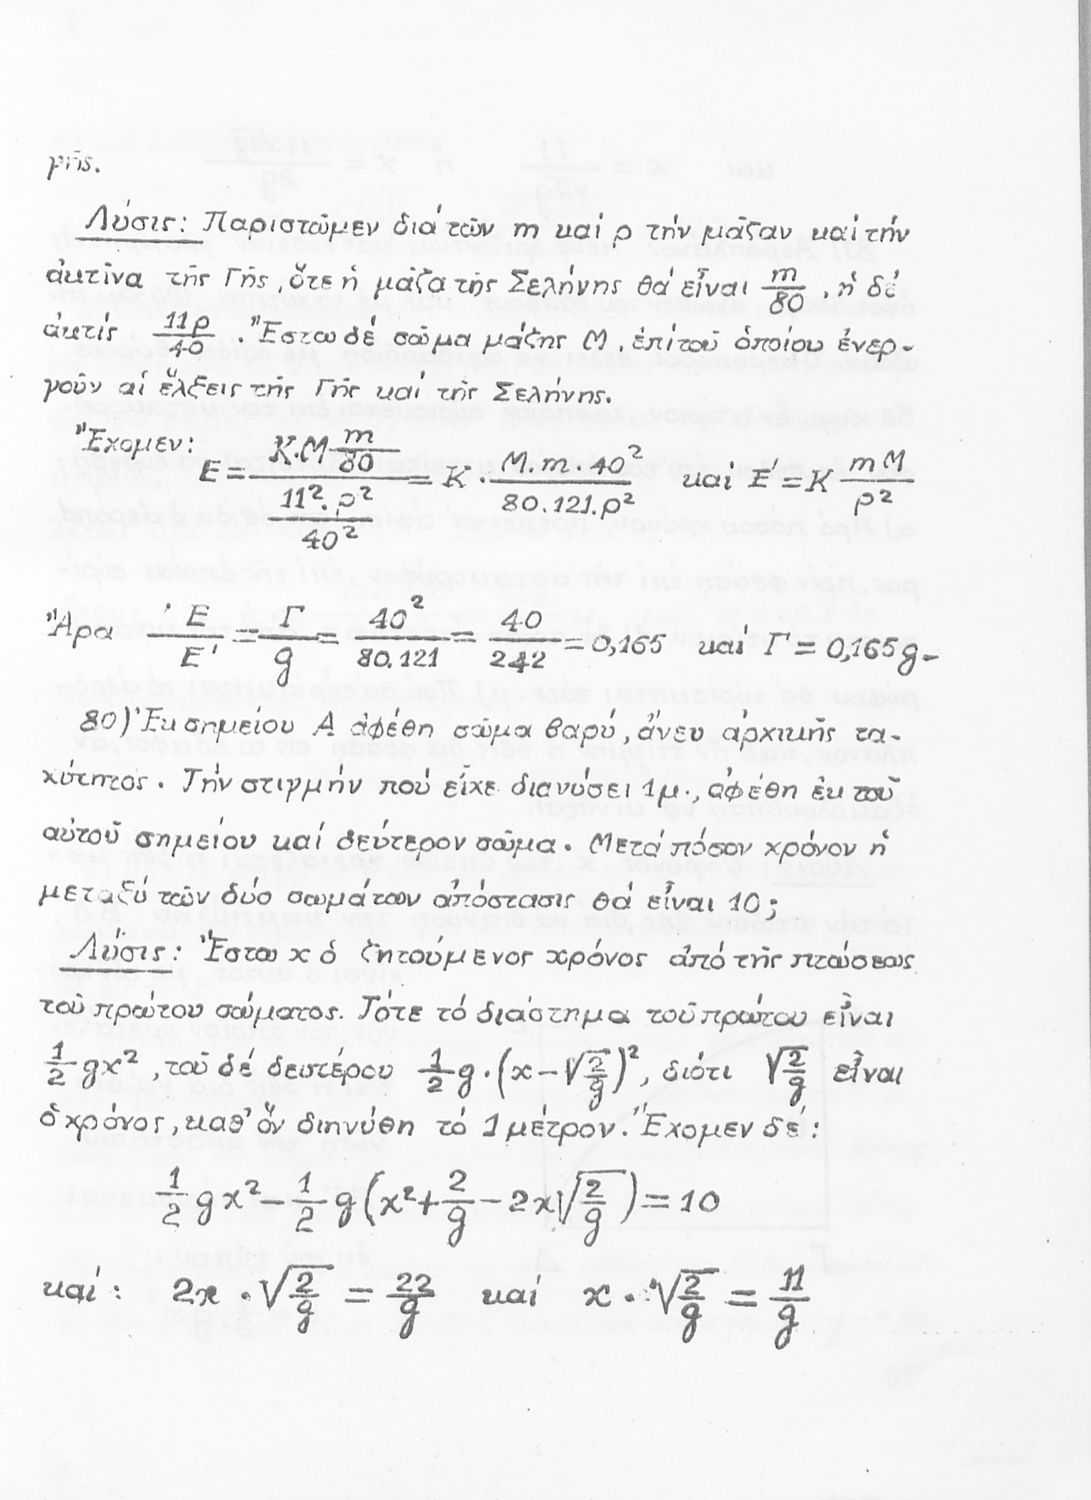 γῆς.
Λύσις: Παριστῶμεν διά τῶν m καί ρ τήν μᾶζαν καί τήν
ἀκτῖνα τῆς Γῆς, ὅτε ἡ μᾶζα τῆς Σελήνης θά εἶναι m/80, ἡ δέ
ἀκτίς 11ρ/40. Ἔστω δέ σῶμα μάζης Μ, ἐπί τοῦ ὁποίου ἐνερ-
γοῦν αἱ ἕλξεις τῆς Γῆς καί τῆς Σελήνης.
Ἔχομεν: E = (K.M m/80) / (11².ρ²/40²) = K · (M.m.40²)/(80.121.ρ²) καί E' = K mM/ρ²
Ἄρα E/E' = Γ/g = 40²/80.121 = 40/242 = 0,165 καί Γ = 0,165g-
80) Ἐκ σημείου Α ἀφέθη σῶμα βαρύ, ἄνευ ἀρχικῆς τα-
χύτητος. Τήν στιγμήν πού εἶχε διανύσει 1μ., ἀφέθη ἐκ τοῦ
αὐτοῦ σημείου καί δεύτερον σῶμα. Μετά πόσον χρόνον ἡ
μεταξύ τῶν δύο σωμάτων ἀπόστασις θά εἶναι 10;
Λύσις: Ἔστω x ὁ ζητούμενος χρόνος ἀπό τῆς πτώσεως
τοῦ πρώτου σώματος. Τότε τό διάστημα τοῦ πρώτου εἶναι
1/2 gx², τοῦ δέ δευτέρου 1/2 g·(x-√(2/g))², διότι √(2/g) εἶναι
ὁ χρόνος, καθ' ὅν διηνύθη τό 1 μέτρον. Ἔχομεν δέ:
1/2 gx² - 1/2 g(x² + 2/g - 2x√(2/g)) = 10
καί: 2x · √(2/g) = 22/g καί x · √(2/g) = 11/g